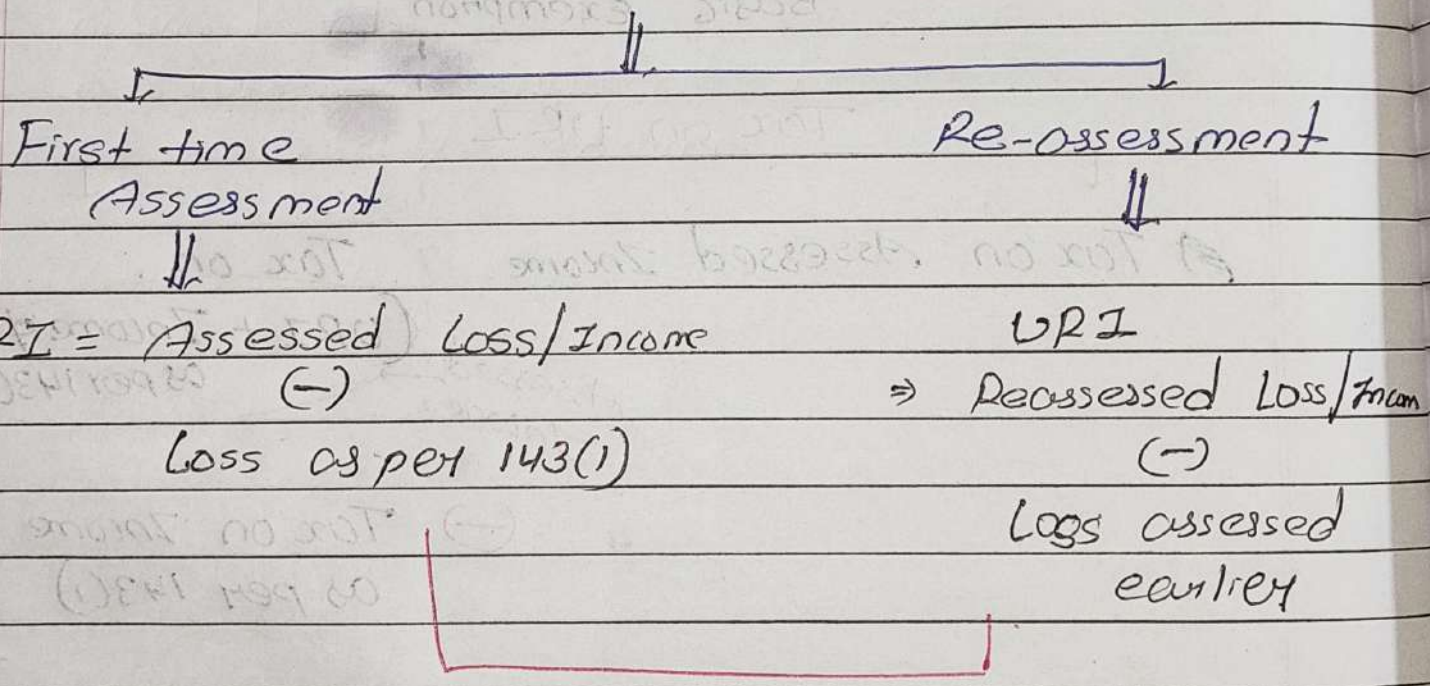 First time
Assessment
Re-assessment
RI = Assessed Loss/Income
(-)
Loss as per 143(1)
URI
⇒ Reassessed Loss/Incom
(-)
Loss assessed
earlier